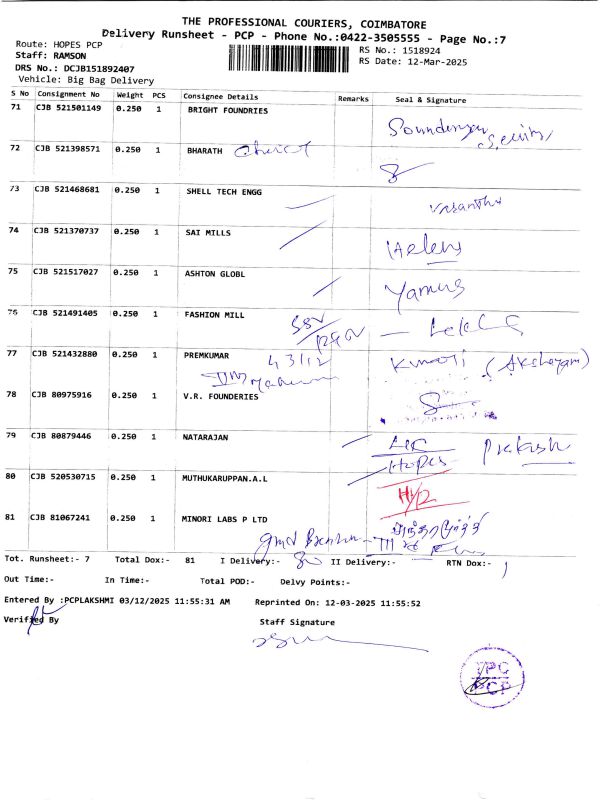 THE PROFESSIONAL COURIERS, COIMBATORE
Delivery Runsheet - PCP - Phone No.:0422-3505555 - Page No.:7
Route: HOPES PCP
Staff: RAMSON
DRS No.: DCJB151892407
Vehicle: Big Bag Delivery
RS No.: 1518924
RS Date: 12-Mar-2025
S No Consignment No Weight PCS Consignee Details Remarks Seal & Signature
71 CJB 521501149 0.250 1 BRIGHT FOUNDRIES
72 CJB 521398571 0.250 1 BHARATH
73 CJB 521468681 0.250 1 SHELL TECH ENGG Vasantha
74 CJB 521370737 0.250 1 SAI MILLS Helens
75 CJB 521517027 0.250 1 ASHTON GLOBL
76 CJB 521491405 0.250 1 FASHION MILL
77 CJB 521432880 0.250 1 PREMKUMAR 43/12 (Akshayam)
78 CJB 80975916 0.250 1 V.R. FOUNDERIES
79 CJB 80879446 0.250 1 NATARAJAN Hopes Prakash
80 CJB 520530715 0.250 1 MUTHUKARUPPAN.A.L
81 CJB 81067241 0.250 1 MINORI LABS P LTD
Tot. Runsheet:- 7 Total Dox:- 81 I Delivery:- 80 II Delivery:- RTN Dox:- 1
Out Time:- In Time:- Total POD:- Delvy Points:-
Entered By :PCPLAKSHMI 03/12/2025 11:55:31 AM Reprinted On: 12-03-2025 11:55:52
Verified By Staff Signature
TPC
PCP